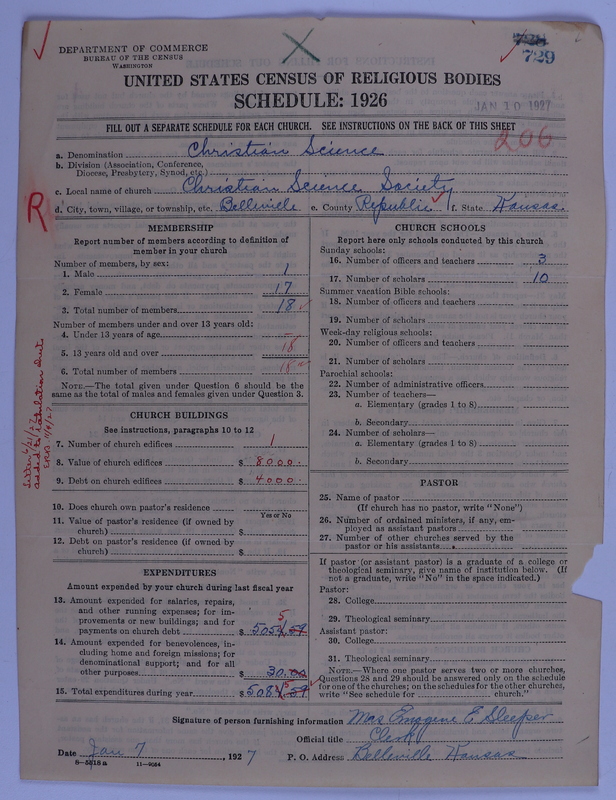 DEPARTMENT OF COMMERCE
BUREAU OF THE CENSUS
WASHINGTON
728
729
UNITED STATES CENSUS OF RELIGIOUS BODIES
SCHEDULE: 1926
JAN 10 1927
FILL OUT A SEPARATE SCHEDULE FOR EACH CHURCH. SEE INSTRUCTIONS ON THE BACK OF THIS SHEET
206
a. Denomination Christian Science
b. Division (Association, Conference, Diocese, Presbytery, Synod, etc.)
c. Local name of church Christian Science Society
R
d. City, town, village, or township, etc. Belleville e. County Republic f. State Kansas.
MEMBERSHIP
Report number of members according to definition of
member in your church
Number of members, by sex:
1. Male 1
2. Female 17
3. Total number of members 18
Number of members under and over 13 years old:
4. Under 13 years of age
5. 13 years old and over 18
6. Total number of members 18
NOTE.—The total given under Question 6 should be the
same as the total of males and females given under Question 3.
Letter 6/21/27
added to tabulation sheet
CHURCH BUILDINGS
See instructions, paragraphs 10 to 12
7. Number of church edifices 1
8. Value of church edifices $ 8000.
9. Debt on church edifices $ 4000.
10. Does church own pastor's residence
Yes or No
11. Value of pastor's residence (if owned by
church) $
12. Debt on pastor's residence (if owned by
church) $
EXPENDITURES
Amount expended by your church during last fiscal year
13. Amount expended for salaries, repairs,
and other running expenses; for im-
provements or new buildings; and for
payments on church debt $ 5054.59
5
14. Amount expended for benevolences, in-
cluding home and foreign missions; for
denominational support; and for all
other purposes $ 30.00
15. Total expenditures during year $ 5084.59
5
CHURCH SCHOOLS
Report here only schools conducted by this church
Sunday schools:
16. Number of officers and teachers 3
17. Number of scholars 10
Summer vacation Bible schools:
18. Number of officers and teachers
19. Number of scholars
Week-day religious schools:
20. Number of officers and teachers
21. Number of scholars
Parochial schools:
22. Number of administrative officers
23. Number of teachers—
a. Elementary (grades 1 to 8)
b. Secondary
24. Number of scholars—
a. Elementary (grades 1 to 8)
b. Secondary
PASTOR
25. Name of pastor
(If church has no pastor, write "None")
26. Number of ordained ministers, if any, em-
ployed as assistant pastors
27. Number of other churches served by the
pastor or his assistants
If pastor (or assistant pastor) is a graduate of a college or
theological seminary, give name of institution below. (If
not a graduate, write "No" in the space indicated.)
Pastor:
28. College
29. Theological seminary
Assistant pastor:
30. College
31. Theological seminary
NOTE.—Where one pastor serves two or more churches,
Questions 28 and 29 should be answered only on the schedule
for one of the churches; on the schedules for the other churches,
write "See schedule for church."
Signature of person furnishing information Mrs Emogene E Sleeper
Official title Clerk
Date Jan 7, 1927 P. O. Address Belleville Kansas
11—9054